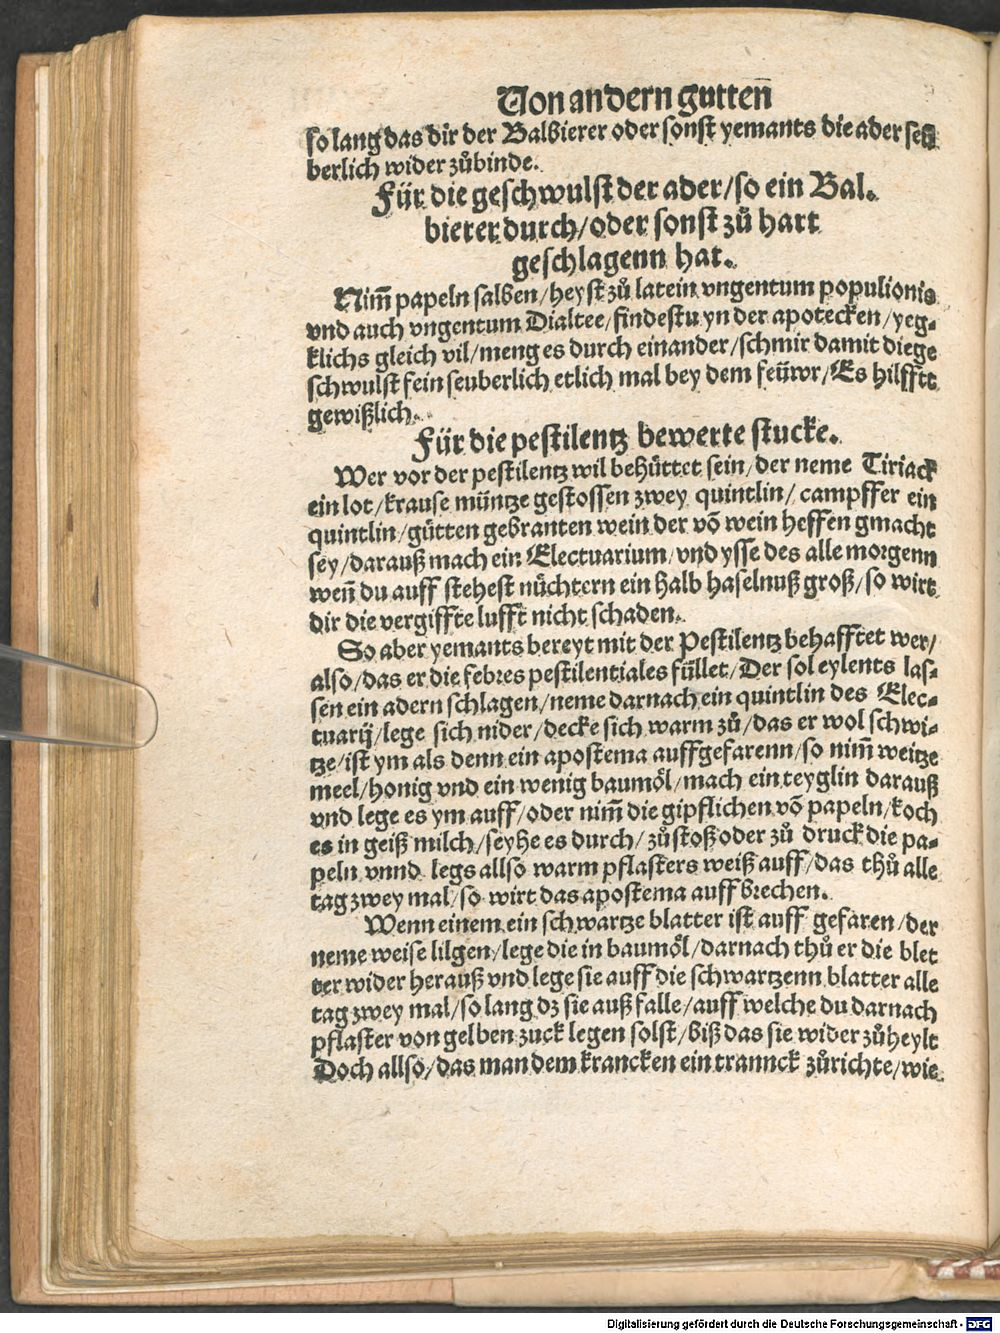 Von andern guttenn̄
so lang das dir der Balbierer oder sonst yemants die ader seu
berlich wider zůbinde.
Für die geschwulst der ader/so ein Bal.
bierer durch/oder sonst zů hart
geschlagenn hat.
Nim̄ papeln salben/heyst zů latein vngentum populionis
vnd auch vngentum Dialtee/findestu yn der apotecken/yeg-
klichs gleich vil/meng es durch einander/schmir damit die ge
schwulst fein seuberlich etlich mal bey dem feüwr/Es hilfft
gewißlich.
Für die pestilentz bewerte stucke.
Wer vor der pestilentz wil behüttet sein/der neme Tiriack
ein lot/krause müntze gestossen zwey quintlin/campffer ein
quintlin/gütten gebranten wein der vō wein heffen gmacht
sey/darauß mach ein Electuarium/vnd ysse des alle morgenn
wen̄ du auff stehest nüchtern ein halb haselnuß groß/so wirt
dir die vergiffte lufft nicht schaden.
So aber yemants bereyt mit der Pestilentz behafftet wer/
also/das er die febres pestilentiales füllet/Der sol eylents las-
sen ein adern schlagen/neme darnach ein quintlin des Elec-
tuarij/lege sich nider/decke sich warm zů/das er wol schwi-
tze/ist ym als denn ein apostema auffgefarenn/so nim̄ weitze
meel/honig vnd ein wenig baumöl/mach ein teyglin darauß
vnd lege es ym auff/oder nim̄ die gipflichen vō papeln/koch
es in geiß milch/seyhe es durch/zůstoß oder zů druck die pa-
peln vnnd legs allso warm pflasters weiß auff/das thů alle
tag zwey mal/so wirt das apostema auff brechen.
Wenn einem ein schwartze blatter ist auff gefaren/der
neme weise lilgen/lege die in baumöl/darnach thů er die blet
ter wider herauß vnd lege sie auff die schwartzenn blatter alle
tag zwey mal/so lang dz sie auß falle/auff welche du darnach
pflaster von gelben zuck legen solst/biß das sie wider zůheylt
Doch allso/das man dem krancken ein trannck zůrichte/wie
Digitalisierung gefördert durch die Deutsche Forschungsgemeinschaft - DFG